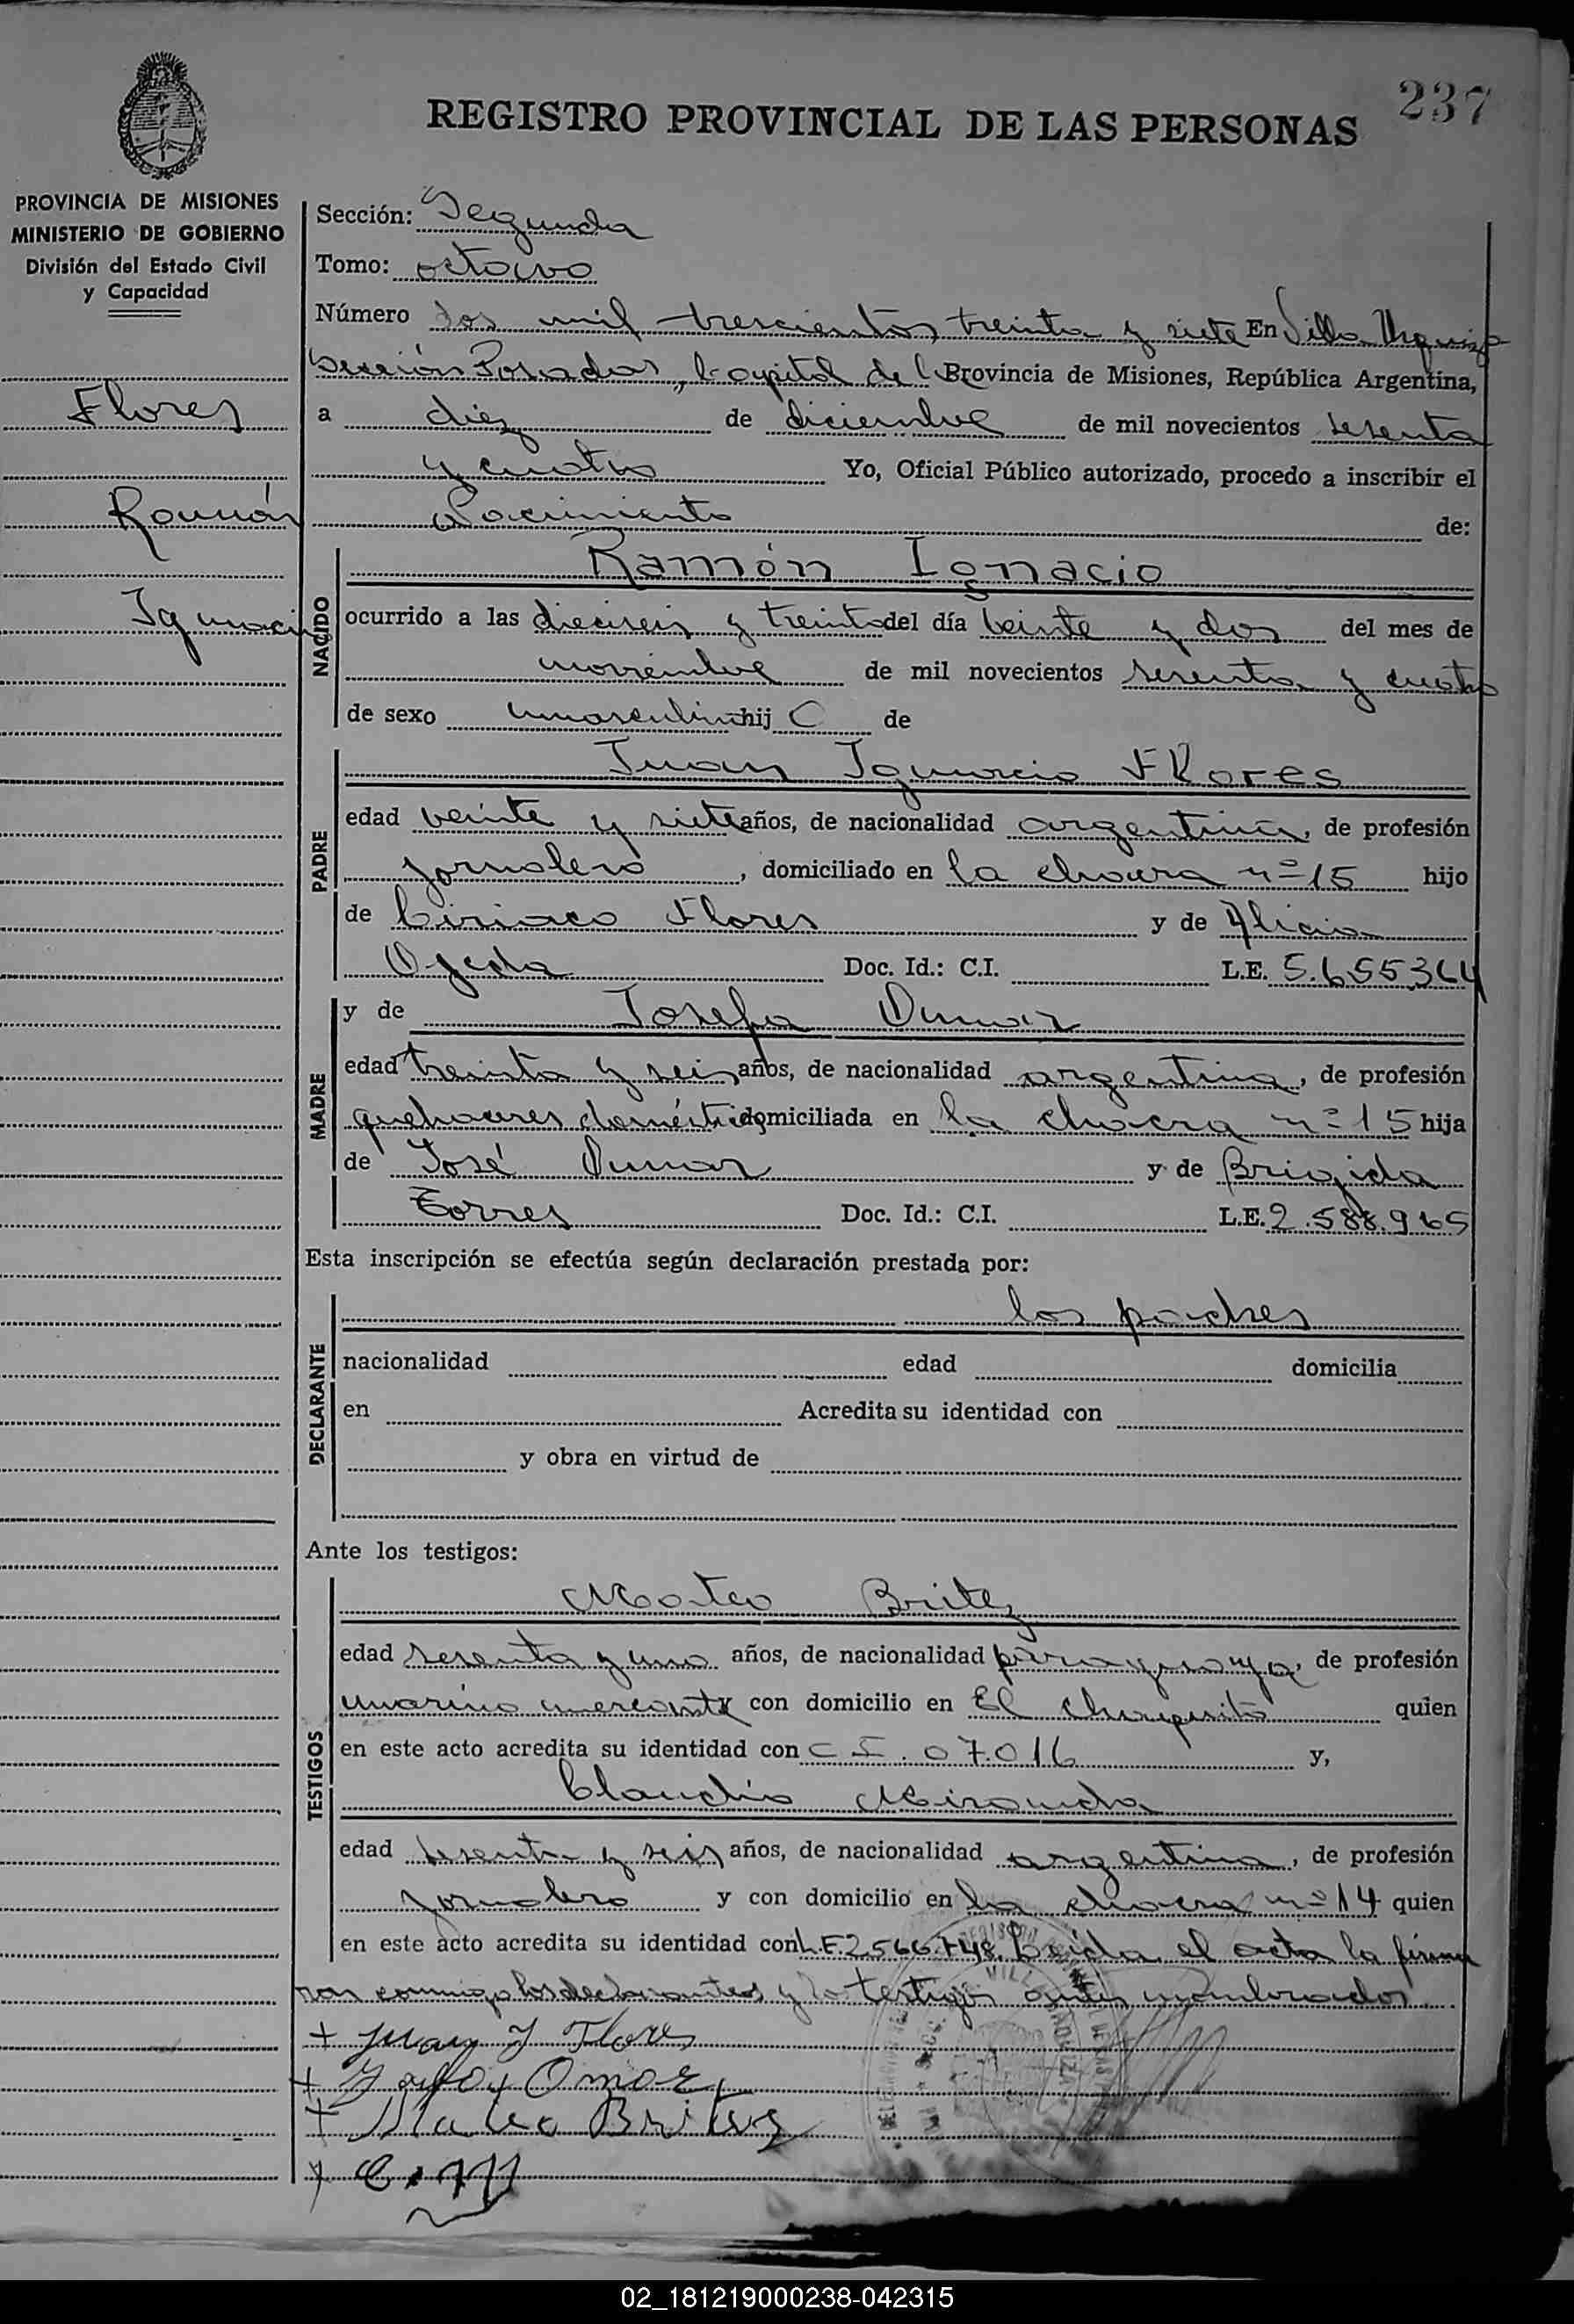 237
REGISTRO PROVINCIAL DE LAS PERSONAS
PROVINCIA DE MISIONES
MINISTERIO DE GOBIERNO
División del Estado Civil
y Capacidad
Flores
Ramón
Ignacio
Sección: Segunda
Tomo: octavo
Número dos mil trescientos treinta y siete En Villa Urquiza
Sección Posadas, Capital de la Provincia de Misiones, República Argentina,
a diez de diciembre de mil novecientos sesenta
y cuatro Yo, Oficial Público autorizado, procedo a inscribir el
Nacimiento de:
NACIDO
Ramón Ignacio
ocurrido a las dieciseis y treinta del día veinte y dos del mes de
noviembre de mil novecientos sesenta y cuatro
de sexo masculino hijo de
PADRE
Juan Ignacio Flores
edad veinte y siete años, de nacionalidad argentina, de profesión
jornalero, domiciliado en la chacra nº 15 hijo
de Ciriaco Flores y de Alicia
Ojeda Doc. Id.: C.I. L.E. 5.655.364
MADRE
y de Josefa
edad treinta y seis años, de nacionalidad argentina, de profesión
quehaceres domésticos domiciliada en la chacra nº 15 hija
de José y de Brigida
Torres Doc. Id.: C.I. L.E. 2.588.965
Esta inscripción se efectúa según declaración prestada por:
DECLARANTE
los padres
nacionalidad edad domicilia
en Acredita su identidad con
y obra en virtud de
Ante los testigos:
TESTIGOS
Mateo Britez
edad sesenta y uno años, de nacionalidad paraguaya, de profesión
marino mercante con domicilio en El Chaquito quien
en este acto acredita su identidad con C I. 07.016 y,
Claudio Miranda
edad sesenta y seis años, de nacionalidad argentina, de profesión
jornalero y con domicilio en la chacra nº 14 quien
en este acto acredita su identidad con L.E. 2566.748. Leída el acta la firma
ron conmigo los declarantes y los testigos antes nombrados.
+ Juan J Flores
+ Omar
+ Mateo Britez
+ C. M
02_181219000238-042315